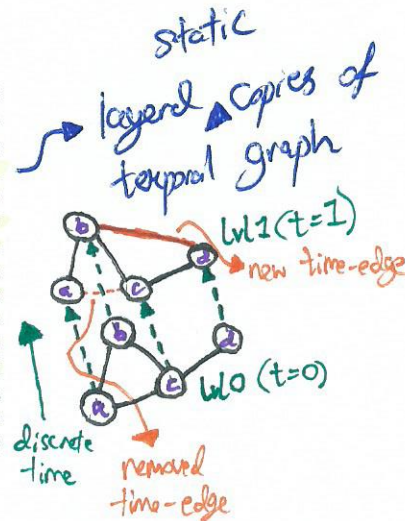 static
layerd copies of
temporal graph
b
lvl 1 (t=1)
d
new time-edge
a
c
b
d
lvl 0 (t=0)
c
a
discrete
time
removed
time-edge